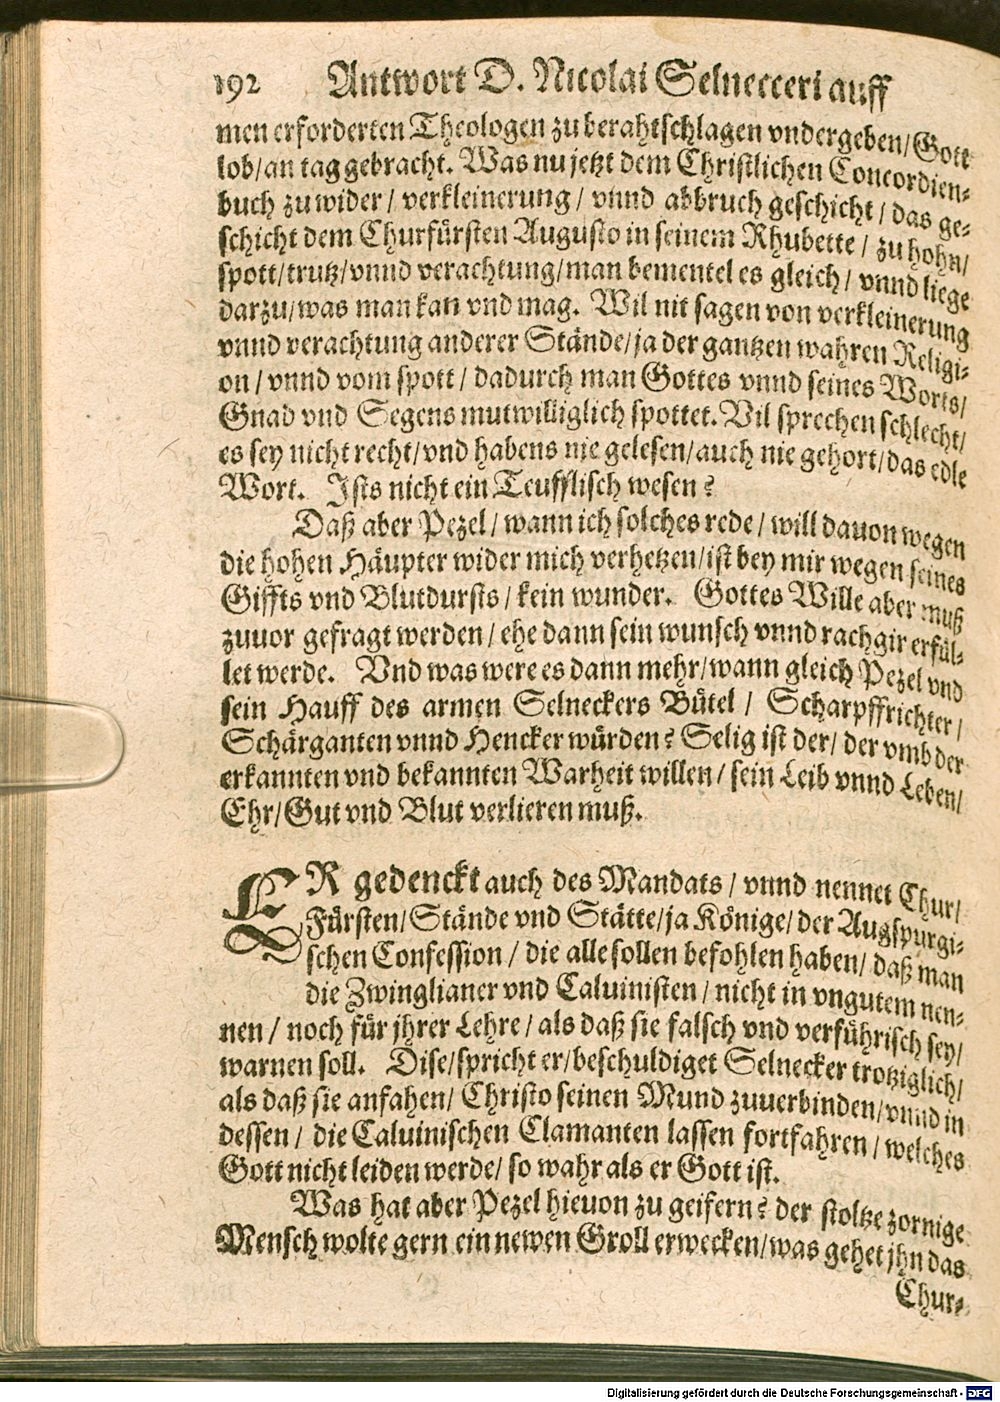 192 Antwort D. Nicolai Selnecceri auff
men erforderten Theologen zu berahtschlagen vndergeben/ Gott
lob/ an tag gebracht. Was nu jetzt dem Christlichen Concordien-
buch zu wider/ verkleinerung/ vnnd abbruch geschicht/ das ge-
schicht dem Churfürsten Augusto in seinem Rhubette/ zu hohn/
spott/ trutz/ vnnd verachtung/ man bementel es gleich/ vnnd liege
darzu/ was man kan vnd mag. Wil nit sagen von verkleinerung
vnnd verachtung anderer Stände/ ja der gantzen wahren Religi-
on/ vnnd vom spott/ dadurch man Gottes vnnd seines Worts/
Gnad vnd Segens mutwilliglich spottet. Vil sprechen schlecht/
es sey nicht recht/ vnd habens nie gelesen/ auch nie gehort/ das edle
Wort. Ists nicht ein Teufflisch wesen?
Daß aber Pezel/ wann ich solches rede/ will dauon wegen
die hohen Häupter wider mich verhetzen/ ist bey mir wegen seines
Giffts vnd Blutdursts/ kein wunder. Gottes Wille aber muß
zuuor gefragt werden/ ehe dann sein wunsch vnnd rachgir erfül-
let werde. Vnd was were es dann mehr/ wann gleich Pezel vnd
sein Hauff des armen Selneckers Bütel/ Scharpffrichter/
Schärganten vnnd Hencker würden? Selig ist der/ der vmb der
erkannten vnd bekannten Warheit willen/ sein Leib vnnd Leben/
Ehr/ Gut vnd Blut verlieren muß.
ER gedenckt auch des Mandats/ vnnd nennet Chur/
Fürsten/ Stände vnd Stätte/ ja Könige/ der Augspurgi-
schen Confession/ die alle sollen befohlen haben/ daß man
die Zwinglianer vnd Caluinisten/ nicht in vngutem nen-
nen/ noch für jhrer Lehre/ als daß sie falsch vnd verführisch sey/
warnen soll. Dise/ spricht er/ beschuldiget Selnecker trotziglich/
als daß sie anfahen/ Christo seinen Mund zuuerbinden/ vnnd in
dessen/ die Caluinischen Clamanten lassen fortfahren/ welches
Gott nicht leiden werde/ so wahr als er Gott ist.
Was hat aber Pezel hieuon zu geifern? der stoltze zornige
Mensch wolte gern ein newen Groll erwecken/ was gehet jhn das
Chur-
Digitalisierung gefördert durch die Deutsche Forschungsgemeinschaft - DFG